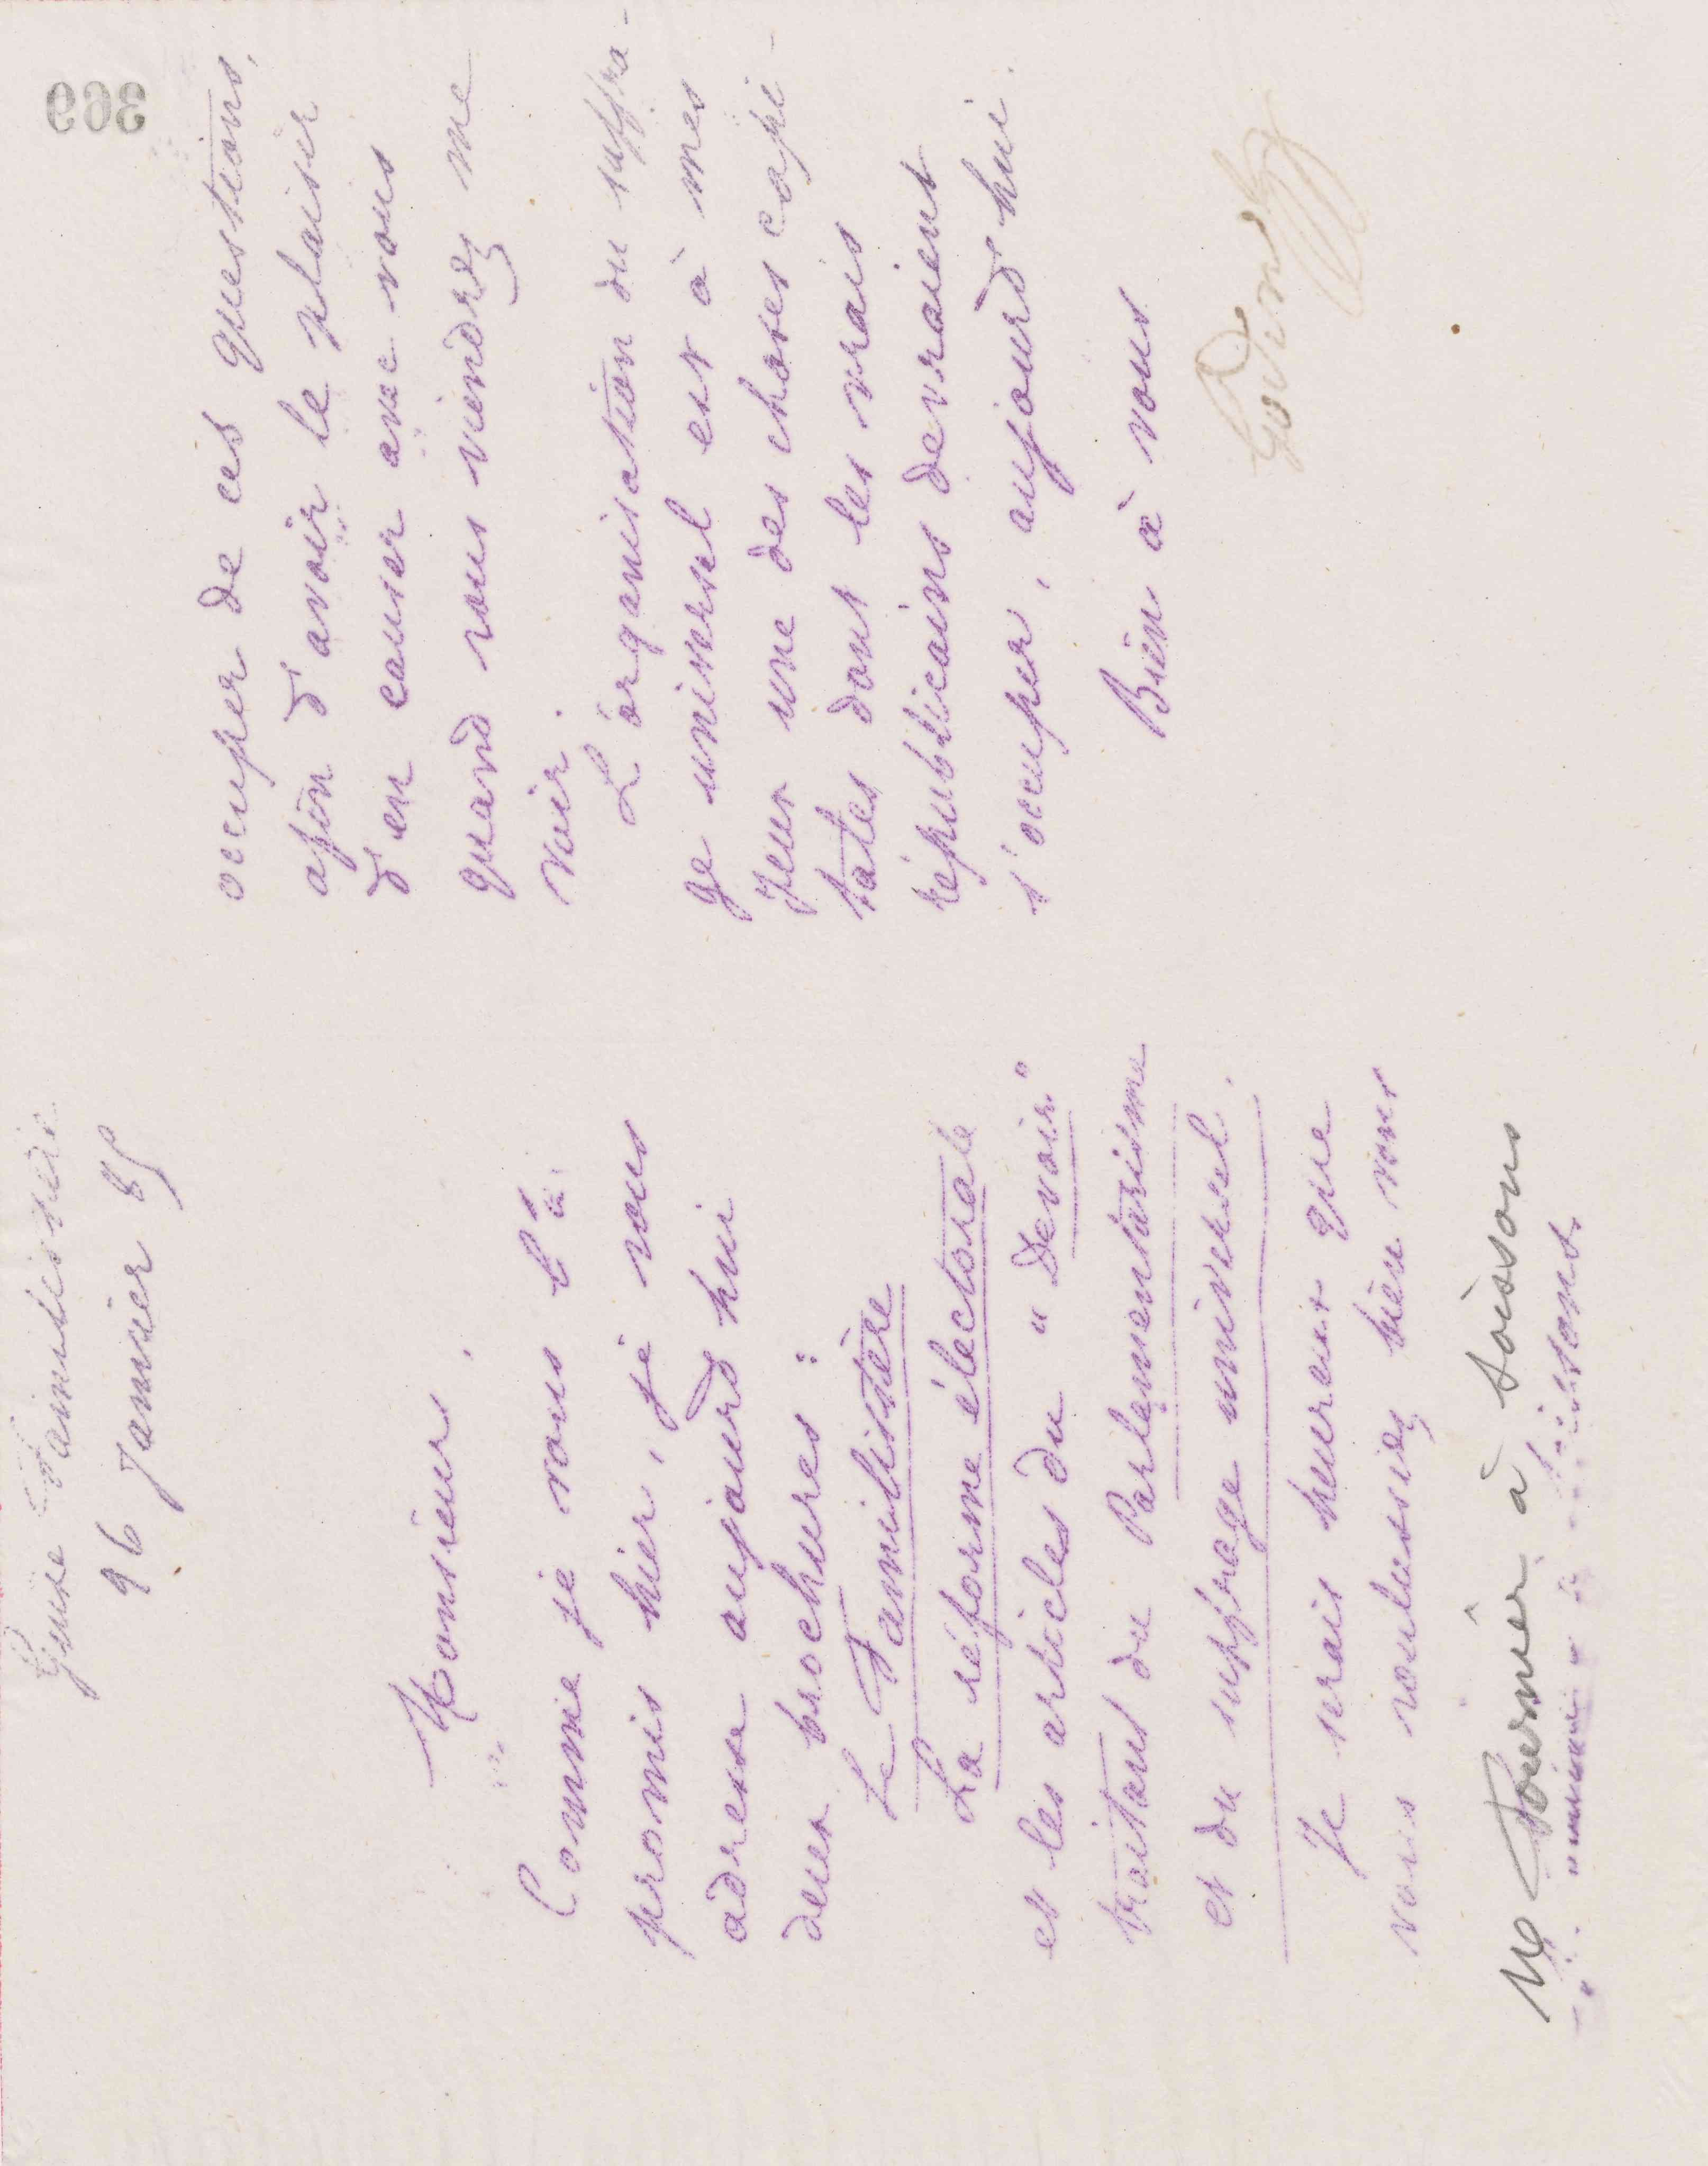 Guise Familistère
26 Janvier 85
Monsieur,
Comme je vous l'ai
promis hier, je vous
adresse aujourd'hui
deux brochures :
Le Familistère
La réforme électorale
et les articles du "Devoir"
traitant du Parlementarisme
et du suffrage universel.
Je serais heureux que
vous voulussiez bien vous
Mr à Soissons
occuper de ces questions,
afin d'avoir le plaisir
d'en causer avec vous
quand vous viendrez me
voir.
L'organisation du suffra-
ge universel est à mes
yeux une des choses capi-
tales dont les vrais
républicains devraient
s'occuper, aujourd'hui.
Bien à vous
Godin
369